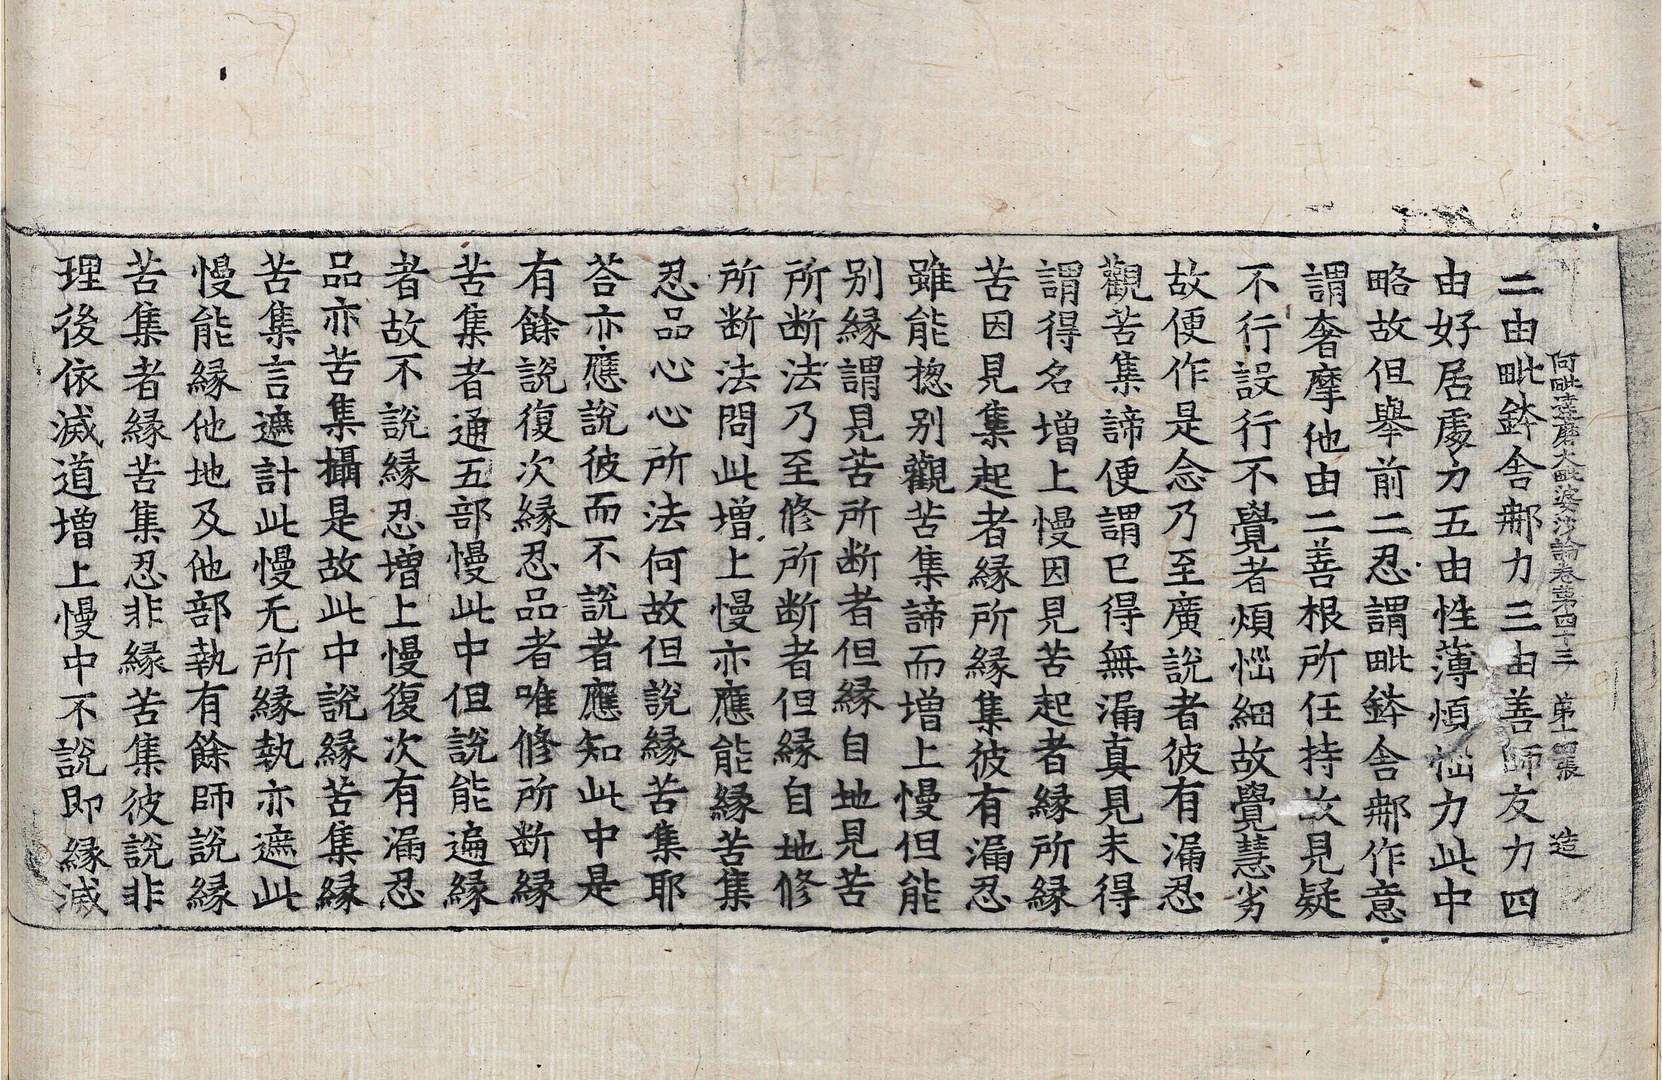 阿毗達磨大毗婆沙論卷第四十三 第十四張 造
二由毗鉢舍那力三由善師友力四
由好居處力五由性薄煩惱力此中
略故但舉前二忍謂毗鉢舍那作意
謂奢摩他由二善根所任持故見疑
不行設行不覺者煩惱細故覺慧劣
故便作是念乃至廣說者彼有漏忍
觀苦集諦便謂已得無漏真見未得
謂得名增上慢因見苦起者緣所緣
苦因見集起者緣所緣集彼有漏忍
雖能揔别觀苦集諦而增上慢但能
别緣謂見苦所断者但緣自地見苦
所断法乃至修所断者但緣自地修
所断法問此增上慢亦應能緣苦集
忍品心心所法何故但說緣苦集耶
荅亦應說彼而不說者應知此中是
有餘說復次緣忍品者唯修所断緣
苦集者通五部慢此中但說能遍緣
者故不說緣忍增上慢復次有漏忍
品亦苦集攝是故此中說緣苦集緣
苦集言遮計此慢无所緣執亦遮此
慢能緣他地及他部執有餘師說緣
苦集者緣苦集忍非緣苦集彼說非
理後依滅道增上慢中不說即緣滅